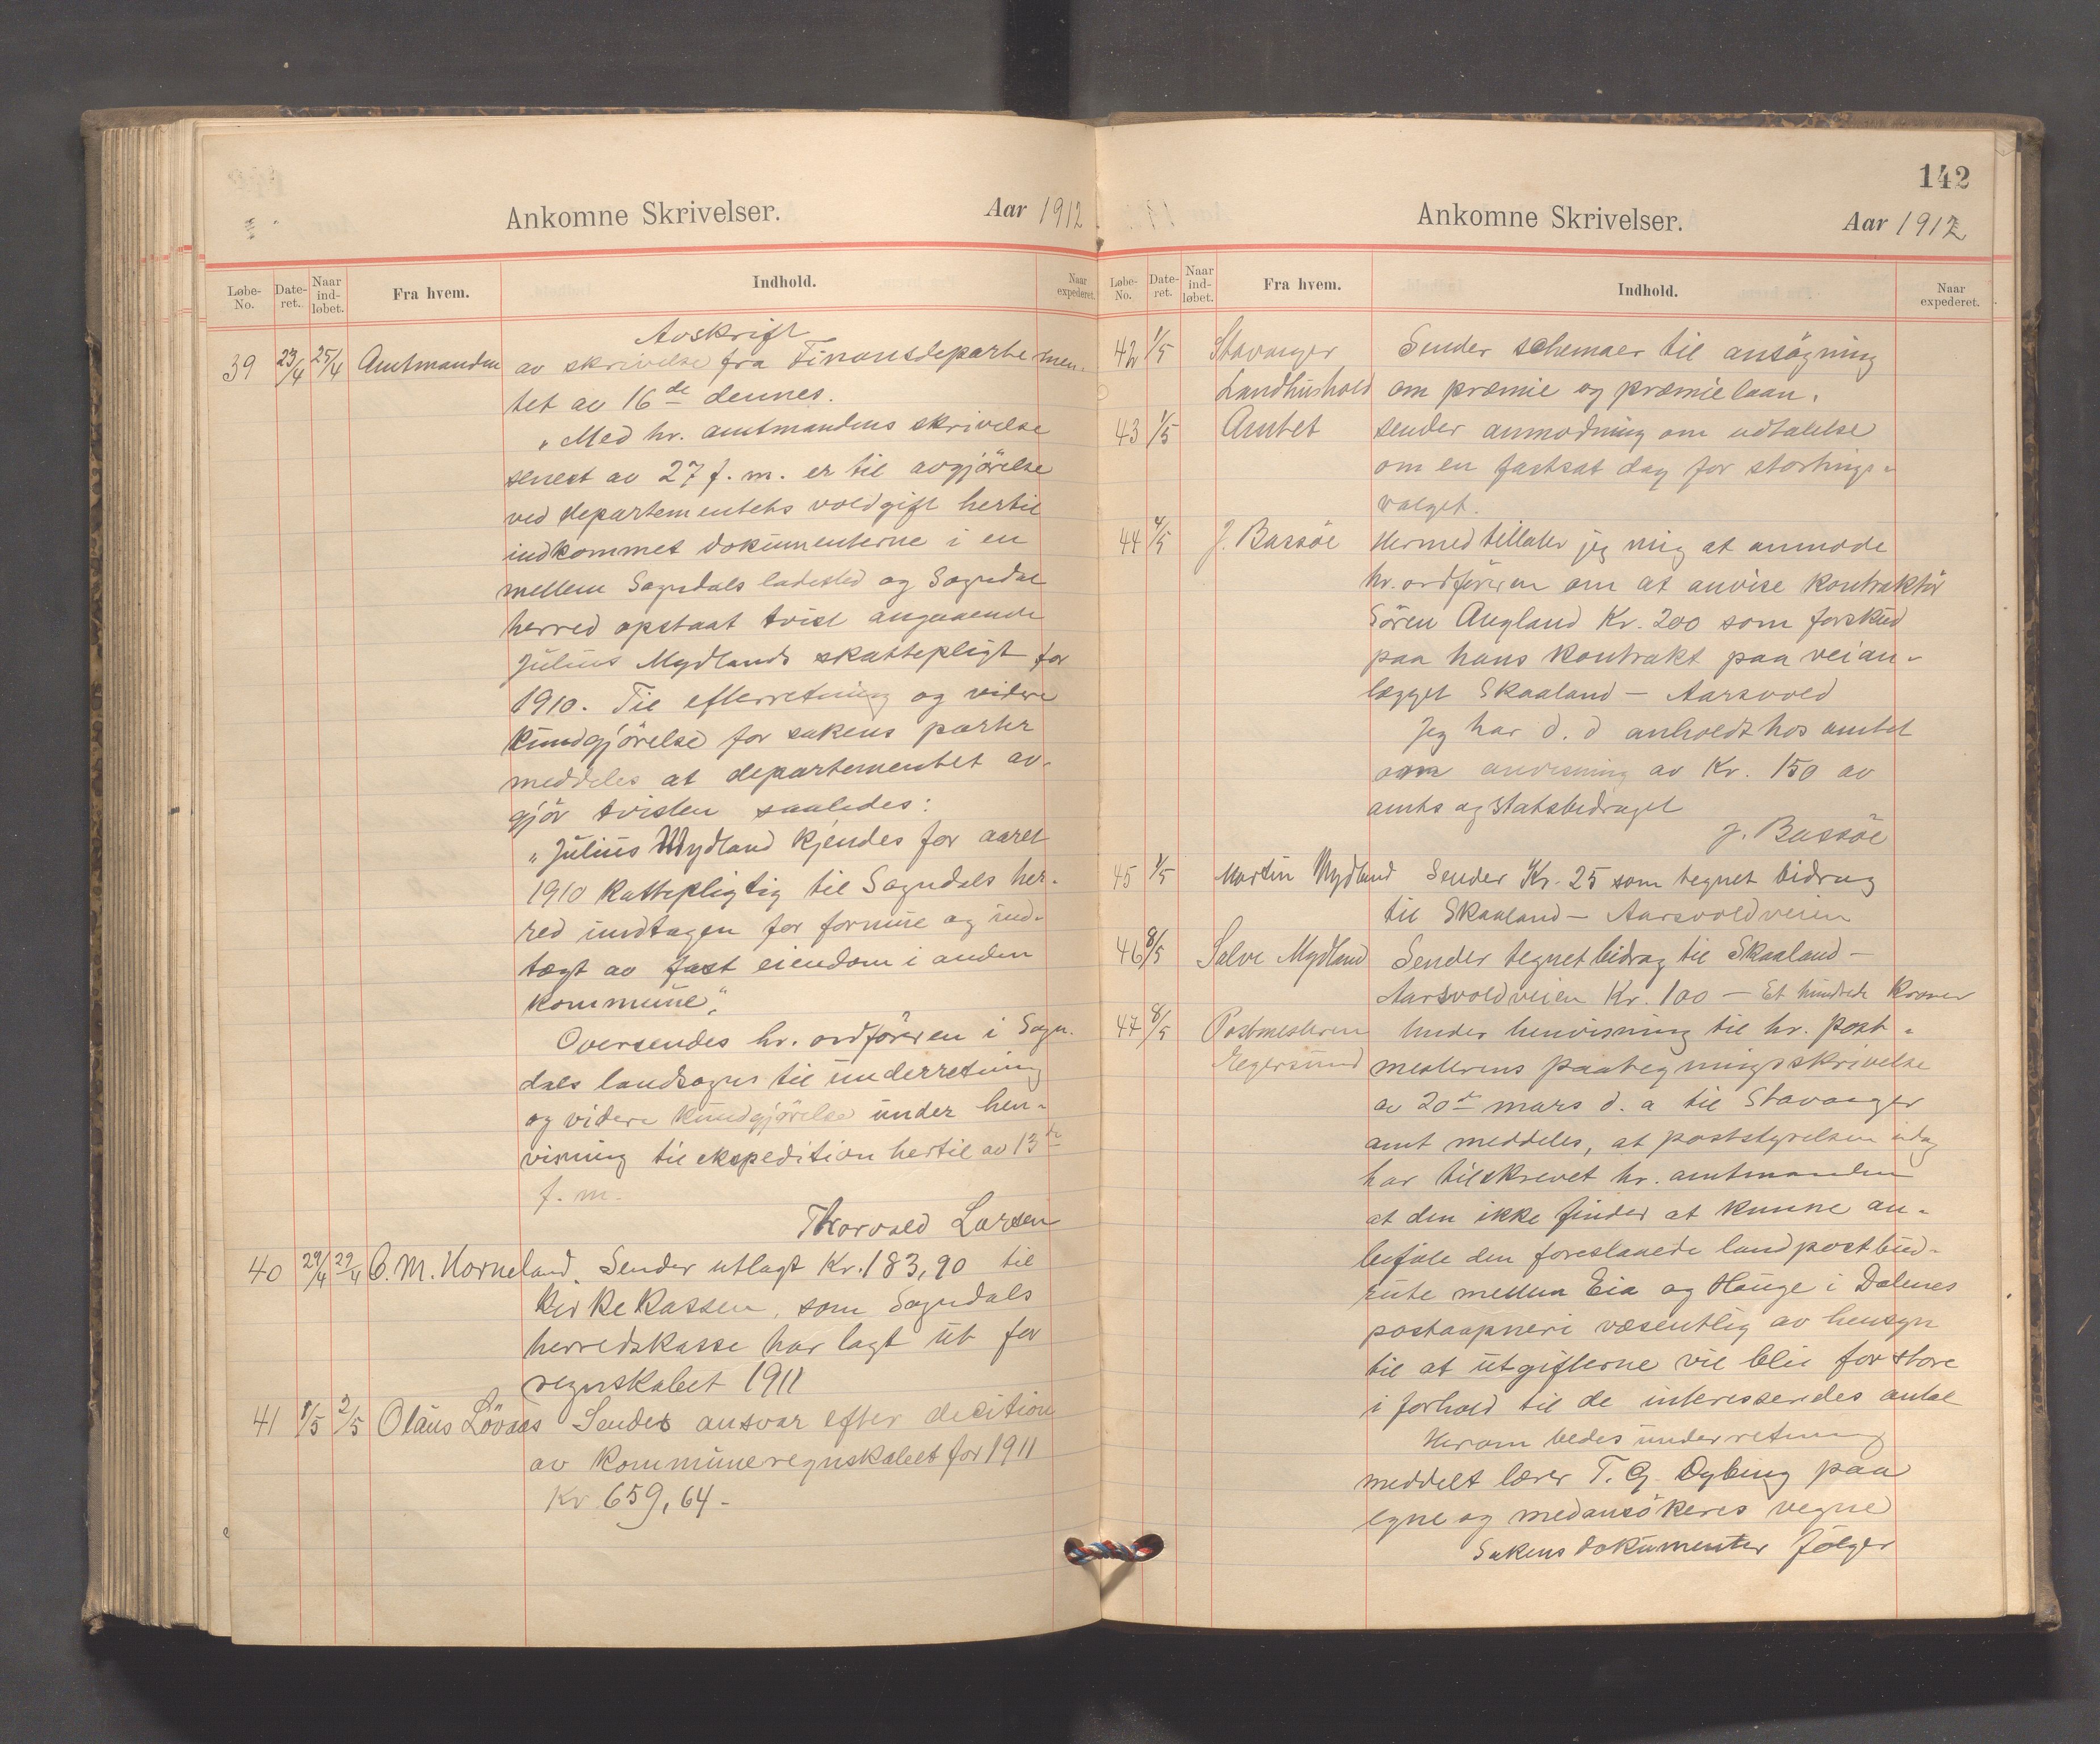 Ankomne Skrivelser.
Aar 1912
Løbe-No.
Date-ret.
Naar ind-løbet.
Fra hvem.
Indhold.
Naar expederet.
Avskrift
39 23/4 25/4 Amtmanden av skrivelse fra Finansdepartemen-
tet av 16de dennes.
"Med hr. amtmandens skrivelse
senest av 27 f. m. er til avgjörelse
ved departementets voldgift hertil
indkommet dokumenterne i en
mellem Sogndals ladested og Sogndal
herred opstaat tvist angaaende
Julius Mydlands skattepligt for
1910. Til efterretning og videre
kundgjörelse for sakens parter
meddeles at departementet av-
gjör tvisten saaledes:
"Julius Mydland kjendes for aaret
1910 kattepligtig til Sogndals her-
red undtagen for formue og ind-
tægt av fast eiendom i anden
kommune".
Oversendes hr. ordföreren i Sogn-
dals landsogn til underretning
og videre kundgjörelse under hen-
visning til ekspedition hertil av 13de
f. m.
Thorvald Larsen
40 29/4 29/4 C. M. Horneland. Sender utlagt Kr. 183,90 til
Kirkekassen, som Sogndals
herredskasse har lagt ut for
regnskabet 1911
41 1/5 2/5 Olaus Lövaas Sender ansvar efter decition
av kommuneregnskabet for 1911
Kr 659,64-
142
Ankomne Skrivelser.
Aar 1912
Løbe-No.
Date-ret.
Naar ind-løbet.
Fra hvem.
Indhold.
Naar expederet.
42 1/5 Stavanger Sender schemaer til ansögning
Landhushold om præmie og præmielaan.
43 1/5 Amtet sender anmodning om udtalelse
om en fastsat dag for stortings-
valget.
44 4/5 J. Bassöe Hermed tillater jeg mig at anmode
hr. ordföreren om at anvise kontraktör
Sören Augland Kr. 200 som forskud
paa hans kontrakt paa veian-
lægget Skaaland – Aarsvold
Jeg har d. d anholdt hos amtet
om anvisning av Kr. 150 av
amts og statsbidraget
J. Bassöe
45 1/5 Martin Mydland Sender Kr. 25 som tegnet bidrag
til Skaaland – Aarsvoldveien
46 8/5 Salve Mydland Sender tegnet bidrag til Skaaland –
Aarsvoldveien Kr. 100 – Et hundrede Kroner
47 8/5 Postmesteren Under henvisning til hr. post-
Egersund mesterens paategningsskrivelse
av 20de mars d. a til Stavanger
amt meddeles, at poststyrelsen idag
har tilskrevet hr. amtmanden
at den ikke finder at kunne an-
befale den foreslaaede landpostbud-
rute mellem Eia og Hauge i Dalenes
postaapneri væsentlig av hensyn
til at utgifterne vil bli for store
i forhold til de interesserides antal
Herom bedes underretning
meddelt lærer T. G. Dybing paa
egne og medansökeres vegne
Sakens dokumenter fölger